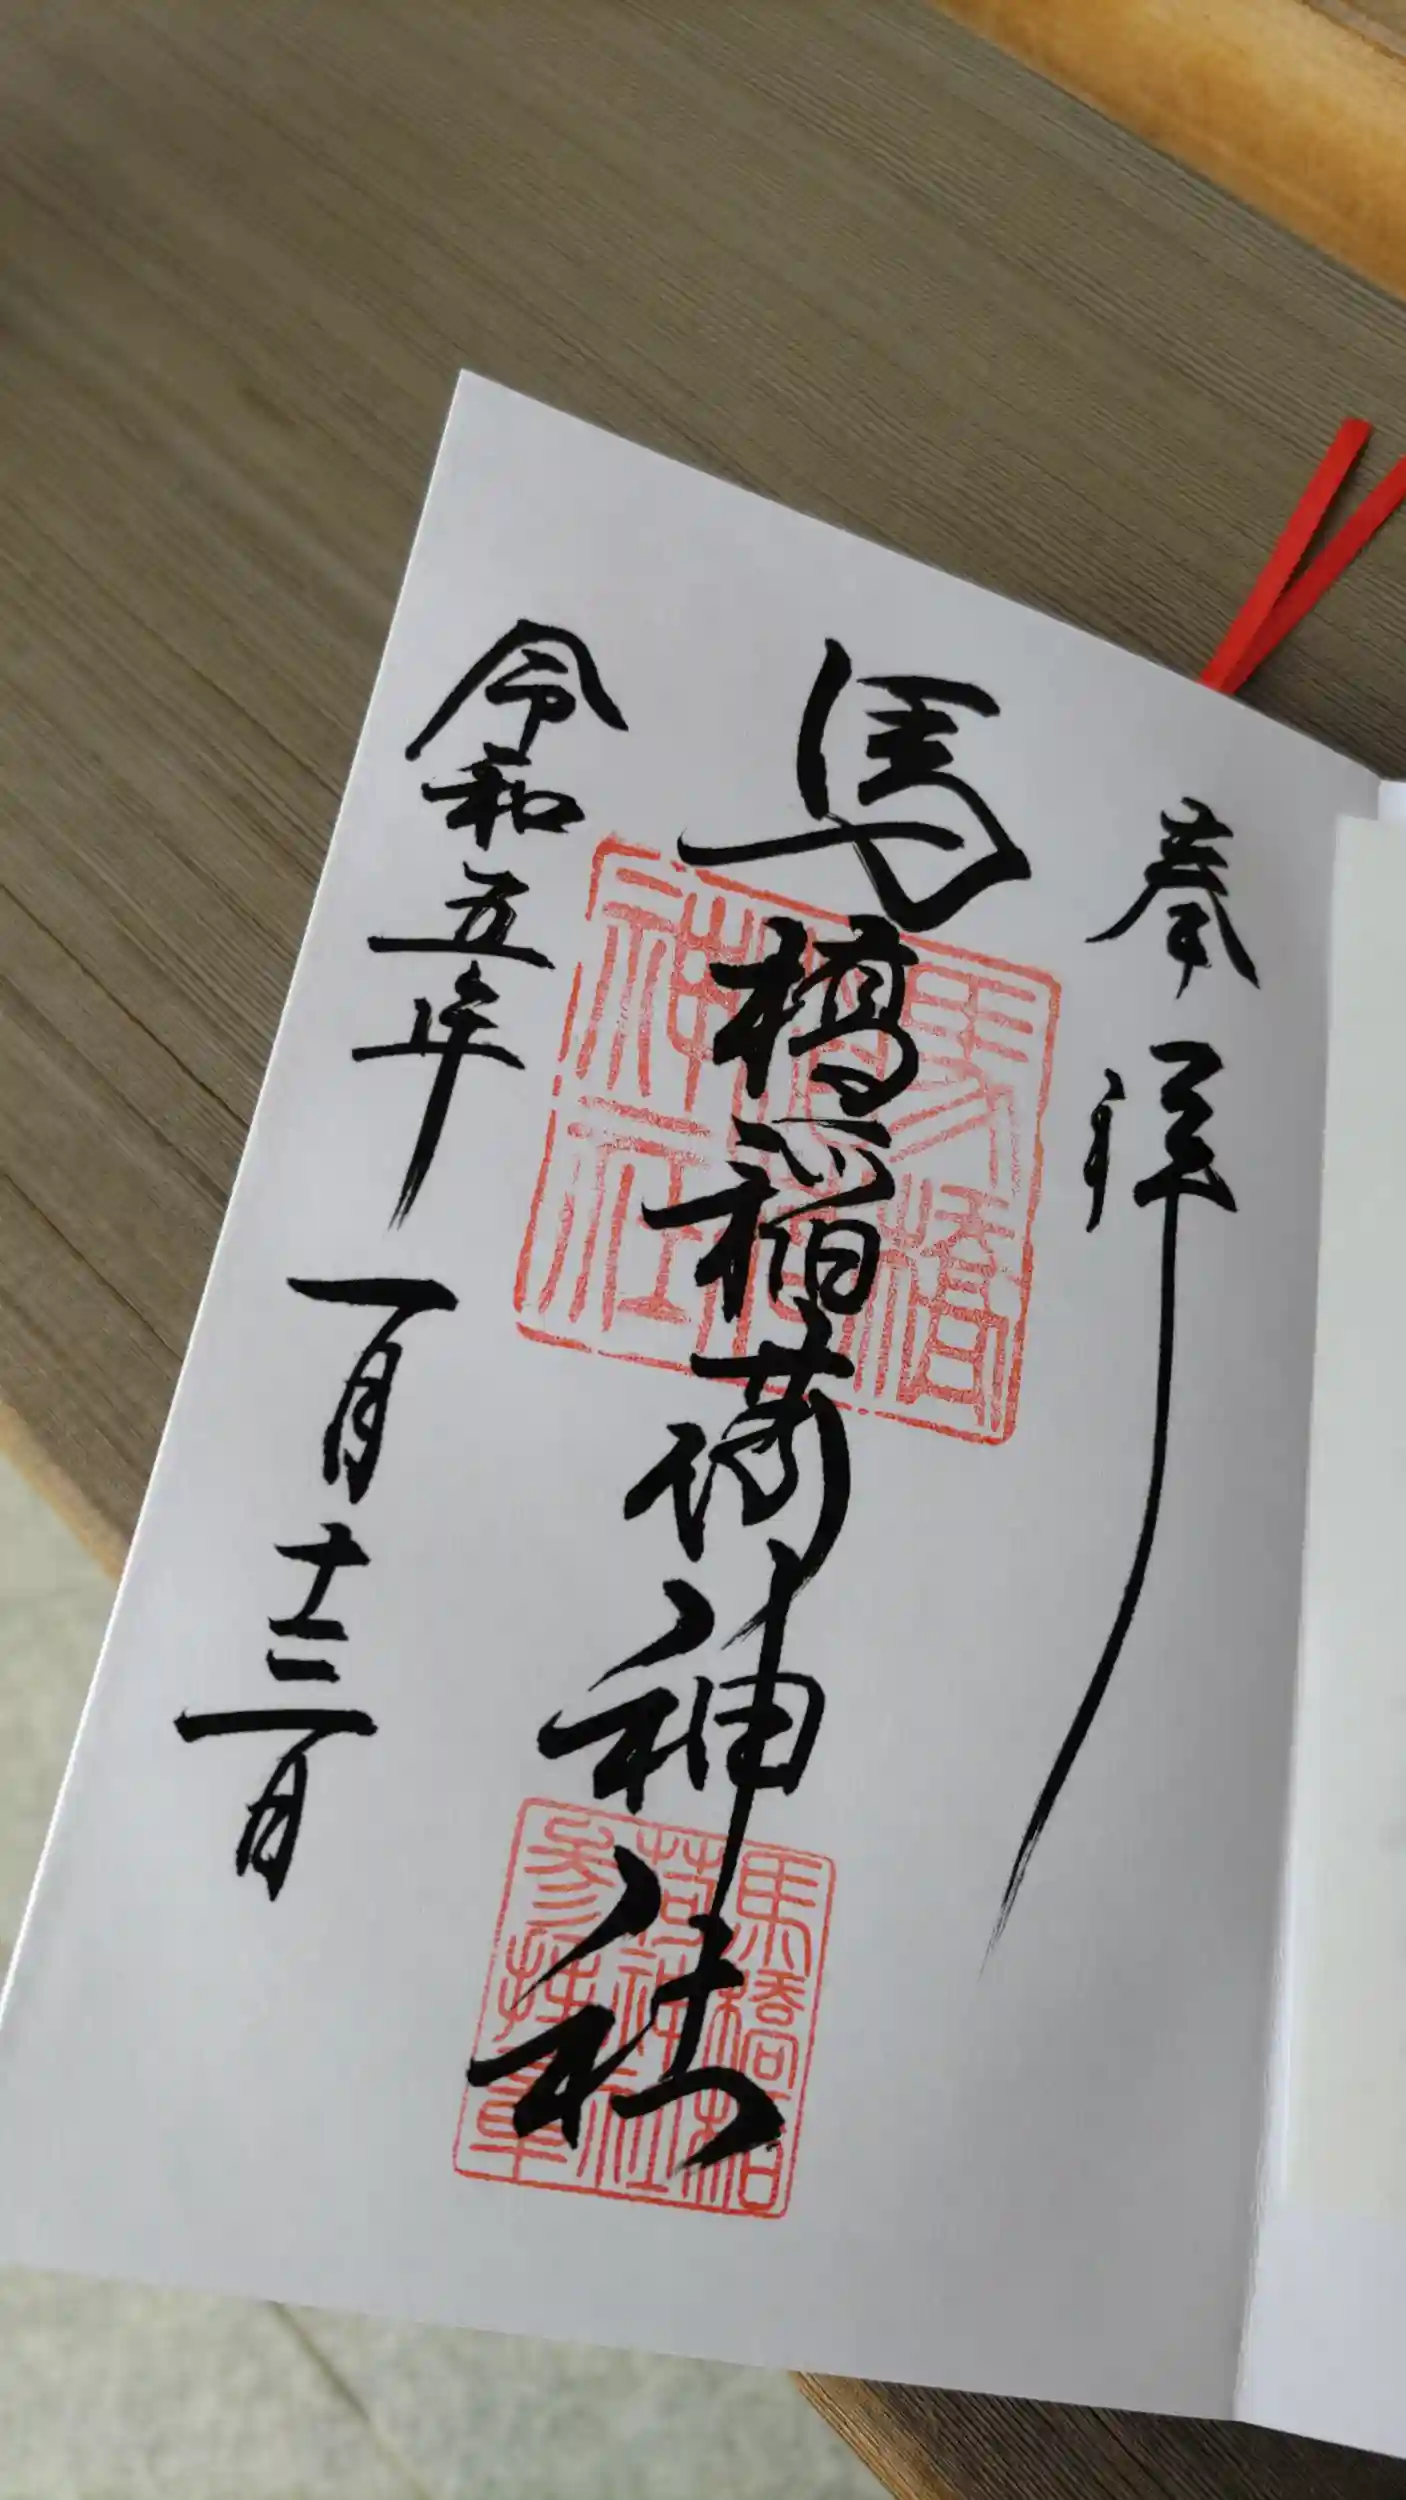 奉拝
馬橋稲荷神社
令和五年一月十三日
馬橋稲荷神社
馬橋稲荷神社参拝章